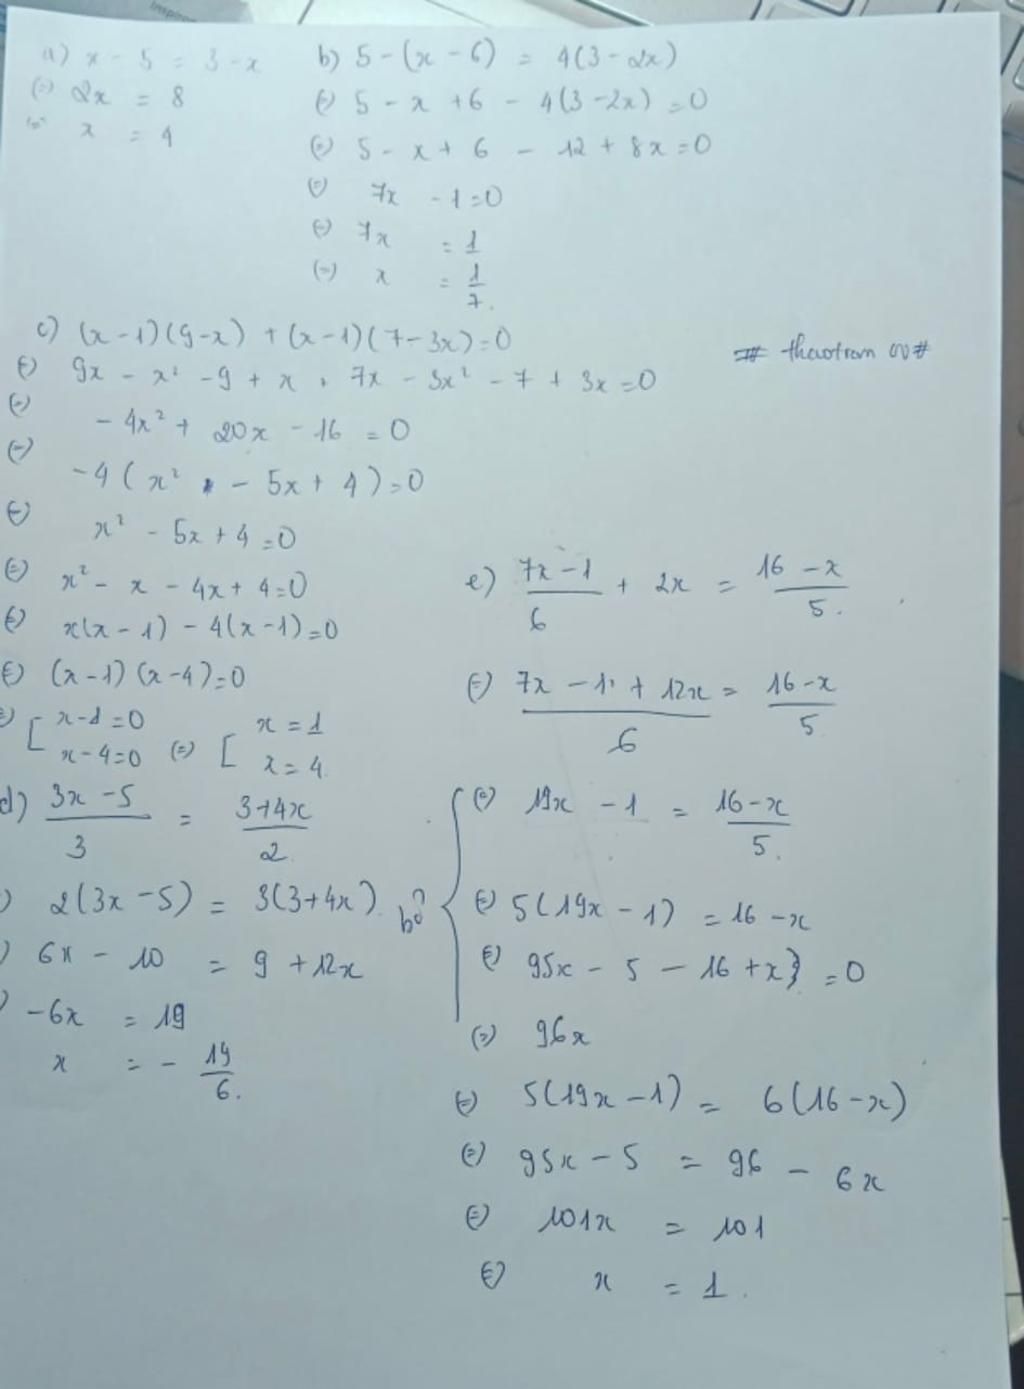 Inspiron
a) x - 5 = 3 - x
(=) 2x = 8
(=) x = 4
b) 5 - (x - 6) = 4(3 - 2x)
(=) 5 - x + 6 - 4(3 - 2x) = 0
(=) 5 - x + 6 - 12 + 8x = 0
(=) 7x - 1 = 0
(=) 7x = 1
(=) x = 1/7.
c) (x - 1)(9 - x) + (x - 1)(7 - 3x) = 0
(=) 9x - x² - 9 + x + 7x - 3x² - 7 + 3x = 0
(=) - 4x² + 20x - 16 = 0
(=) -4(x² - 5x + 4) = 0
(=) x² - 5x + 4 = 0
(=) x² - x - 4x + 4 = 0
(=) x(x - 1) - 4(x - 1) = 0
(=) (x - 1)(x - 4) = 0
(=) [ x - 1 = 0
x - 4 = 0 (=) [ x = 1
x = 4
d) (3x - 5)/3 = (3 + 4x)/2
) 2(3x - 5) = 3(3 + 4x)
) 6x - 10 = 9 + 12x
) -6x = 19
x = - 19/6.
e) (7x - 1)/6 + 2x = (16 - x)/5.
(=) (7x - 1 + 12x)/6 = (16 - x)/5
bỏ { (=) 19x - 1 = (16 - x)/5.
(=) 5(19x - 1) = 16 - x
(=) 95x - 5 - 16 + x} = 0
(=) 96x
(=) 5(19x - 1) = 6(16 - x)
(=) 95x - 5 = 96 - 6x
(=) 101x = 101
(=) x = 1.